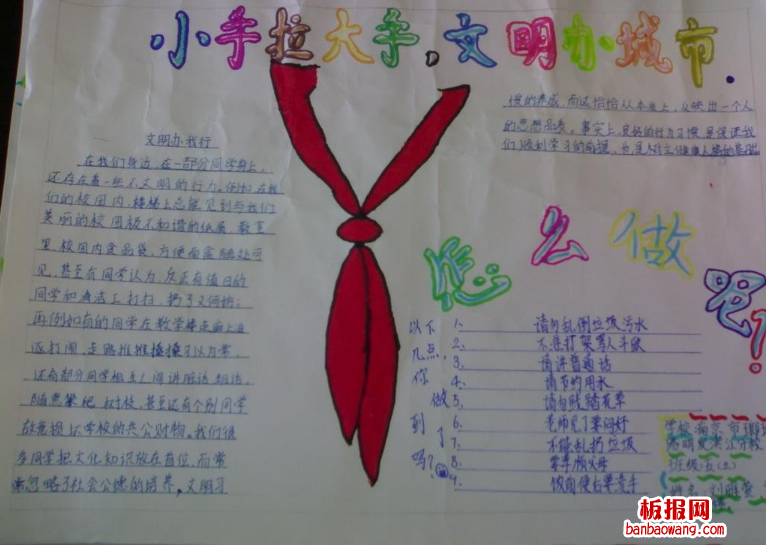 小手拉大手,文明办城市.
文明办我行
在我们身边,在一部分同学身上,
还存在着一些不文明的行为,例如在我
们的校园内,楼梯上总能见到与我们
美丽的校园极不和谐的纸屑,教室
里,校园内食品袋,方便面盒随处可
见,甚至在同学认为,反正有值日的
同学和清洁工打扫,扔了又何妨;
再例如有的同学在教学楼走廊上追
逐打闹,走路推推搡搡习以为常,
还有部分同学相互之间讲脏话粗话,
随意攀爬树枝,甚至还有个别同学
故意损坏学校的共公财物。我们很
多同学把文化知识放在首位,而常
常忽略了社会公德的培养。文明习
惯的养成,而这恰恰从本质上,反映出一个人
的思想品质,事实上,良好的行为习惯是保证我
们顺利学习的前提,也是树立健康人格的基础
怎么做呢?
以下几点,你做到了吗?
1. 请勿乱倒垃圾污水
2. 不准打架骂人斗殴
3. 请讲普通话
4. 请节约用水
5. 请勿践踏花草
6. 老师见了要问好
7. 不能乱扔垃圾
8. 要孝顺父母
9. 饭前便后要洗手
学校:南京市
班级:五(
姓名:刘
板报网
banbaowang.com